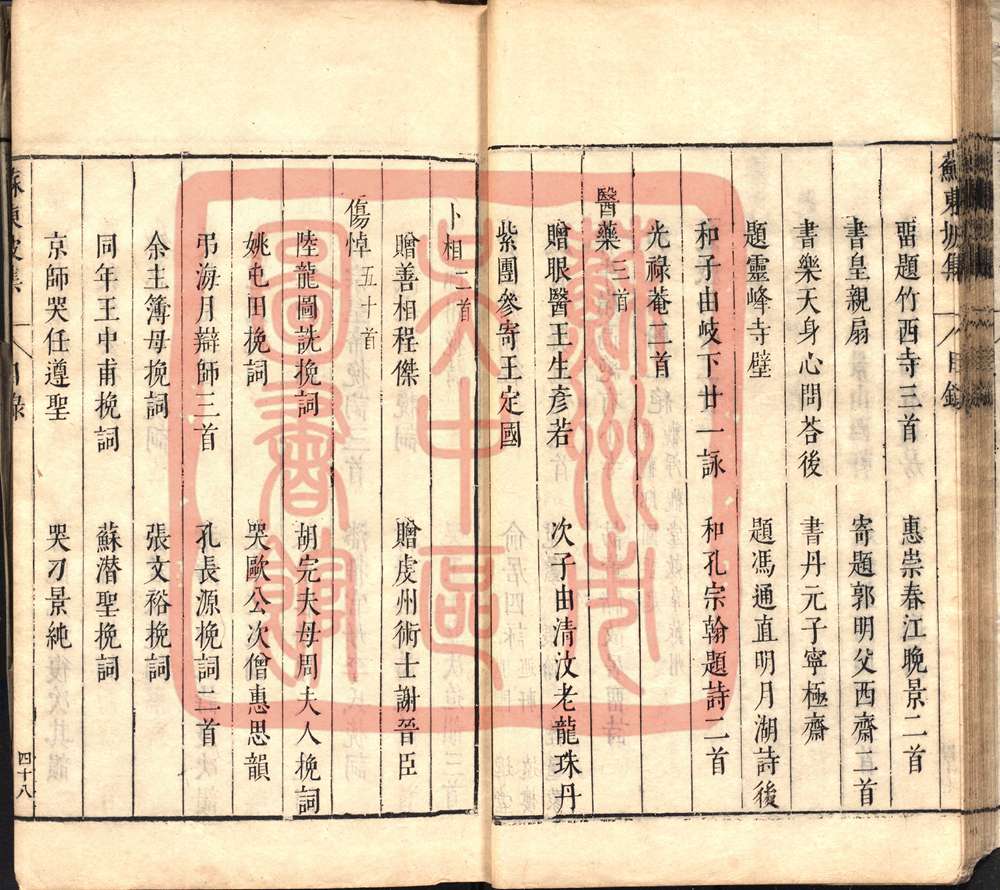 蘇東坡集 目錄
畱題竹西寺三首 惠崇春江晚景二首
書皇親扇 寄題郭明父西齋二首
書樂天身心問荅後 書丹元子寧極齋
題靈峰寺壁 題馮通直明月湖詩後
和子由岐下廿一詠 和孔宗翰題詩二首
光祿菴二首
醫藥三首
贈眼醫王生彥若 次子由清汶老龍珠丹
紫團參寄王定國
卜相二首
贈善相程傑 贈虔州術士謝晉臣
傷悼五十首
陸龍圖詵挽詞 胡完夫母周夫人挽詞
姚屯田挽詞 哭歐公次僧惠思韻
弔海月辯師三首 孔長源挽詞二首
余主簿母挽詞 張文裕挽詞
同年王中甫挽詞 蘇潛聖挽詞
京師哭任遵聖 哭刁景純
蘇東坡集 目錄 四十八
蘇州市吳中區圖書館